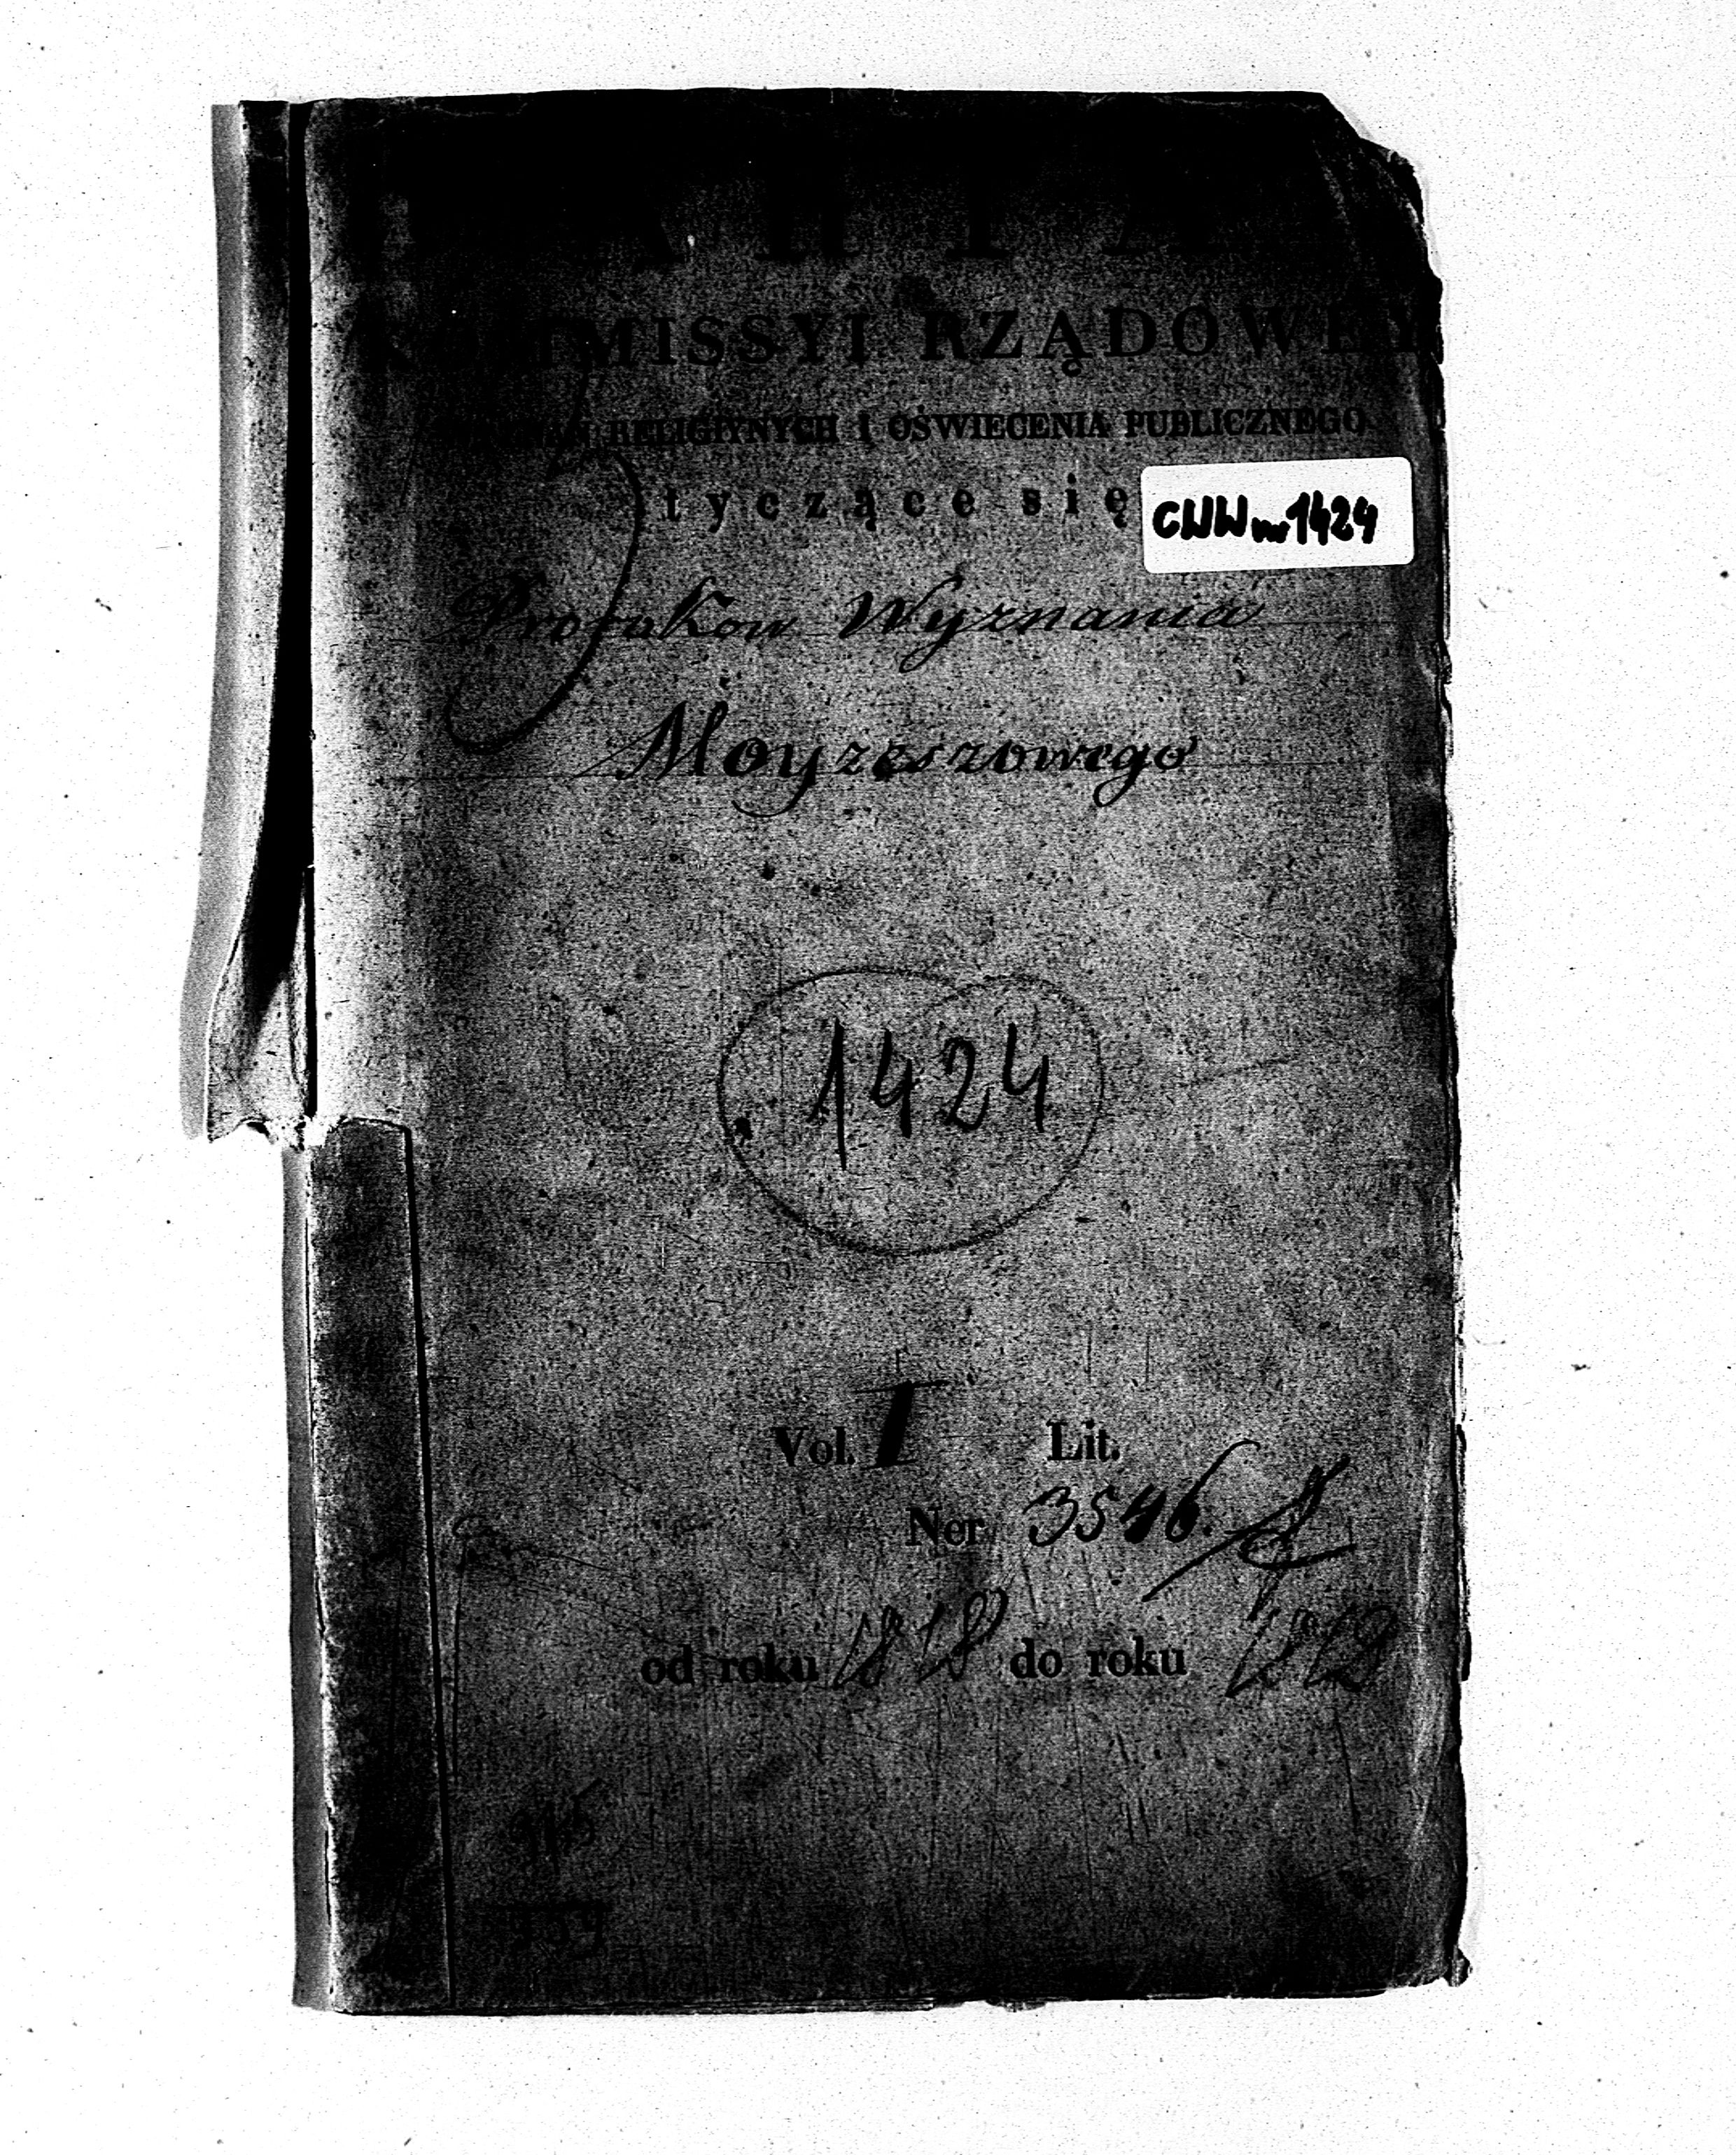 AKTA
KOMMISSYI RZĄDOWEY
WYZNAŃ RELIGIYNYCH I OŚWIECENIA PUBLICZNEGO
tyczące się
CWW nr 1424
Wyznania
Moyzeszowego
1424
Vol. I Lit.
Ner. 3546.
od roku 1818 do roku